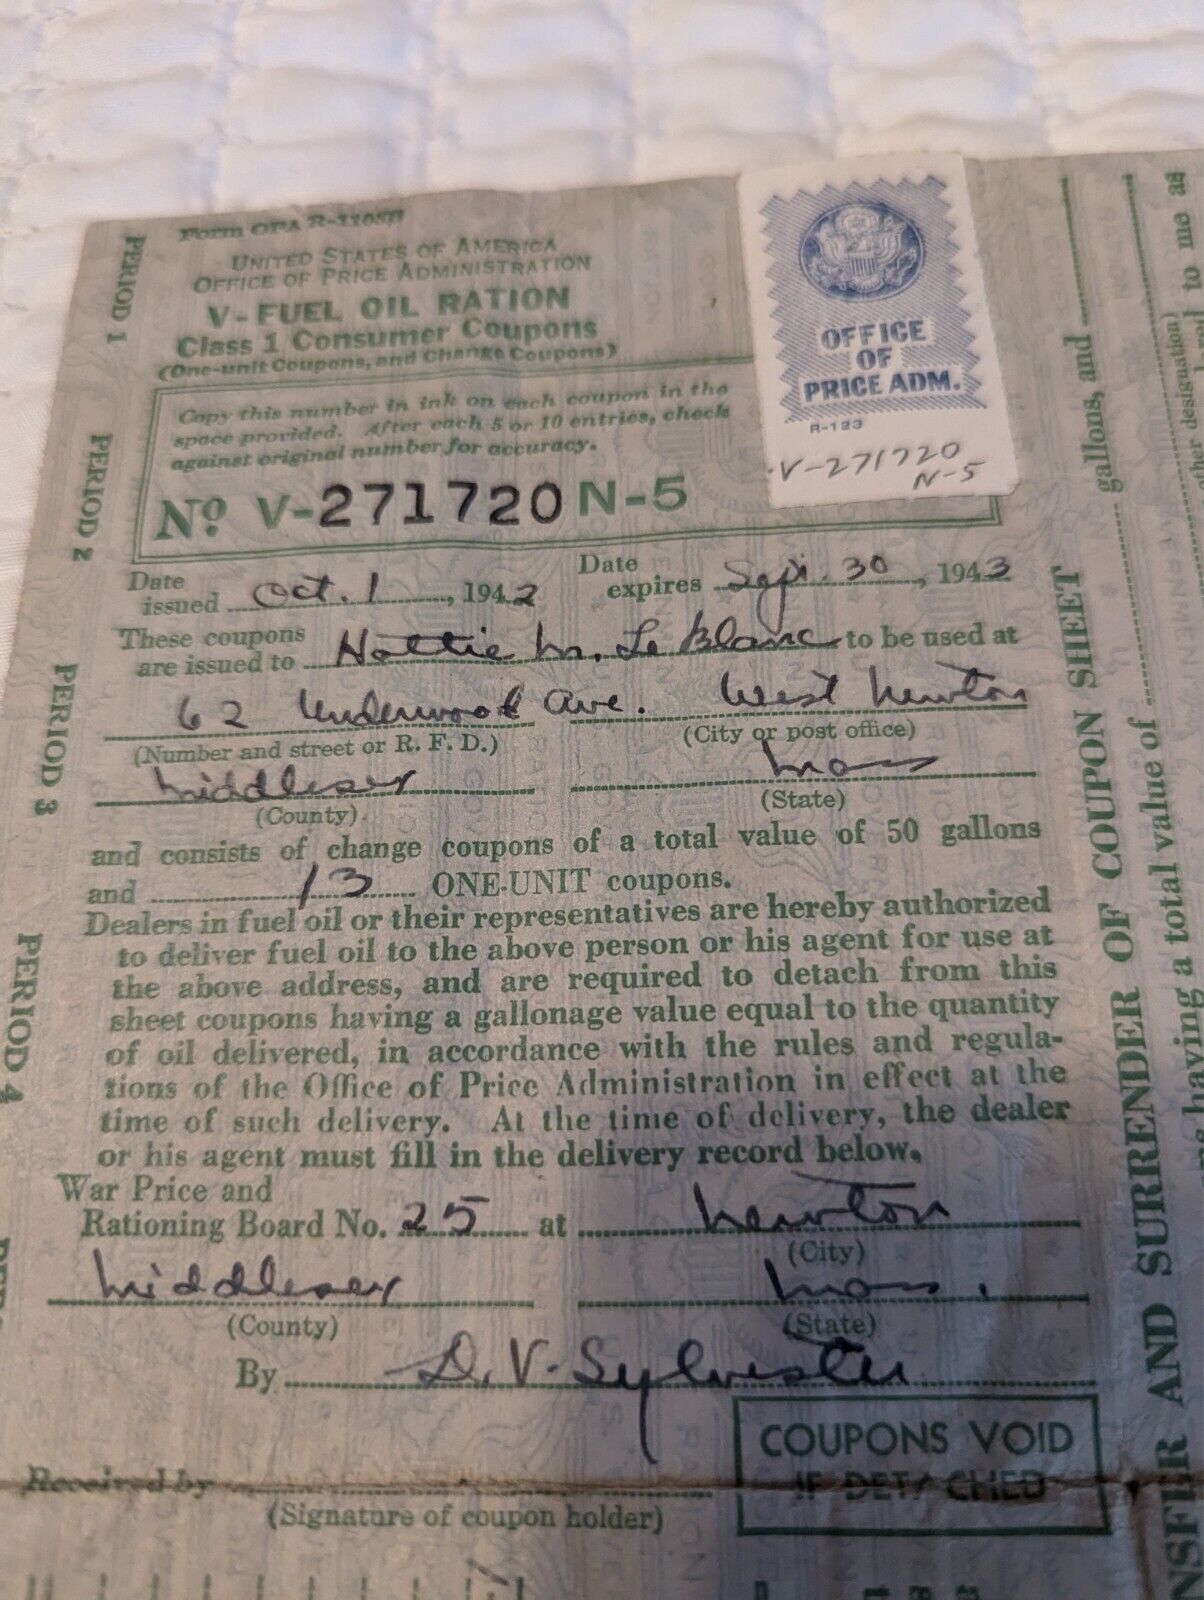 Form OPA R-1105B
UNITED STATES OF AMERICA
OFFICE OF PRICE ADMINISTRATION
V-FUEL OIL RATION
Class 1 Consumer Coupons
(One-unit Coupons, and Change Coupons)
Copy this number in ink on each coupon in the
space provided. After each 5 or 10 entries, check
against original number for accuracy.
No V-271720 N-5
OFFICE
OF
PRICE ADM.
R-123
V-271720
N-5
Date issued Oct. 1, 1942 Date expires Sept. 30, 1943
These coupons are issued to Hattie M. Le Blanc to be used at
62 Underwood Ave. West Newton
(Number and street or R. F. D.) (City or post office)
Middlesex Mass
(County) (State)
and consists of change coupons of a total value of 50 gallons
and 13 ONE-UNIT coupons.
Dealers in fuel oil or their representatives are hereby authorized
to deliver fuel oil to the above person or his agent for use at
the above address, and are required to detach from this
sheet coupons having a gallonage value equal to the quantity
of oil delivered, in accordance with the rules and regula-
tions of the Office of Price Administration in effect at the
time of such delivery. At the time of delivery, the dealer
or his agent must fill in the delivery record below.
War Price and
Rationing Board No. 25 at Newton
(City)
Middlesex Mass.
(County) (State)
By D. V. Sylvester
COUPONS VOID
IF DETACHED
Received by
(Signature of coupon holder)
PERIOD 1
PERIOD 2
PERIOD 3
PERIOD 4
AND SURRENDER OF COUPON SHEET
gallons, and
having a total value of
designation)
to me as